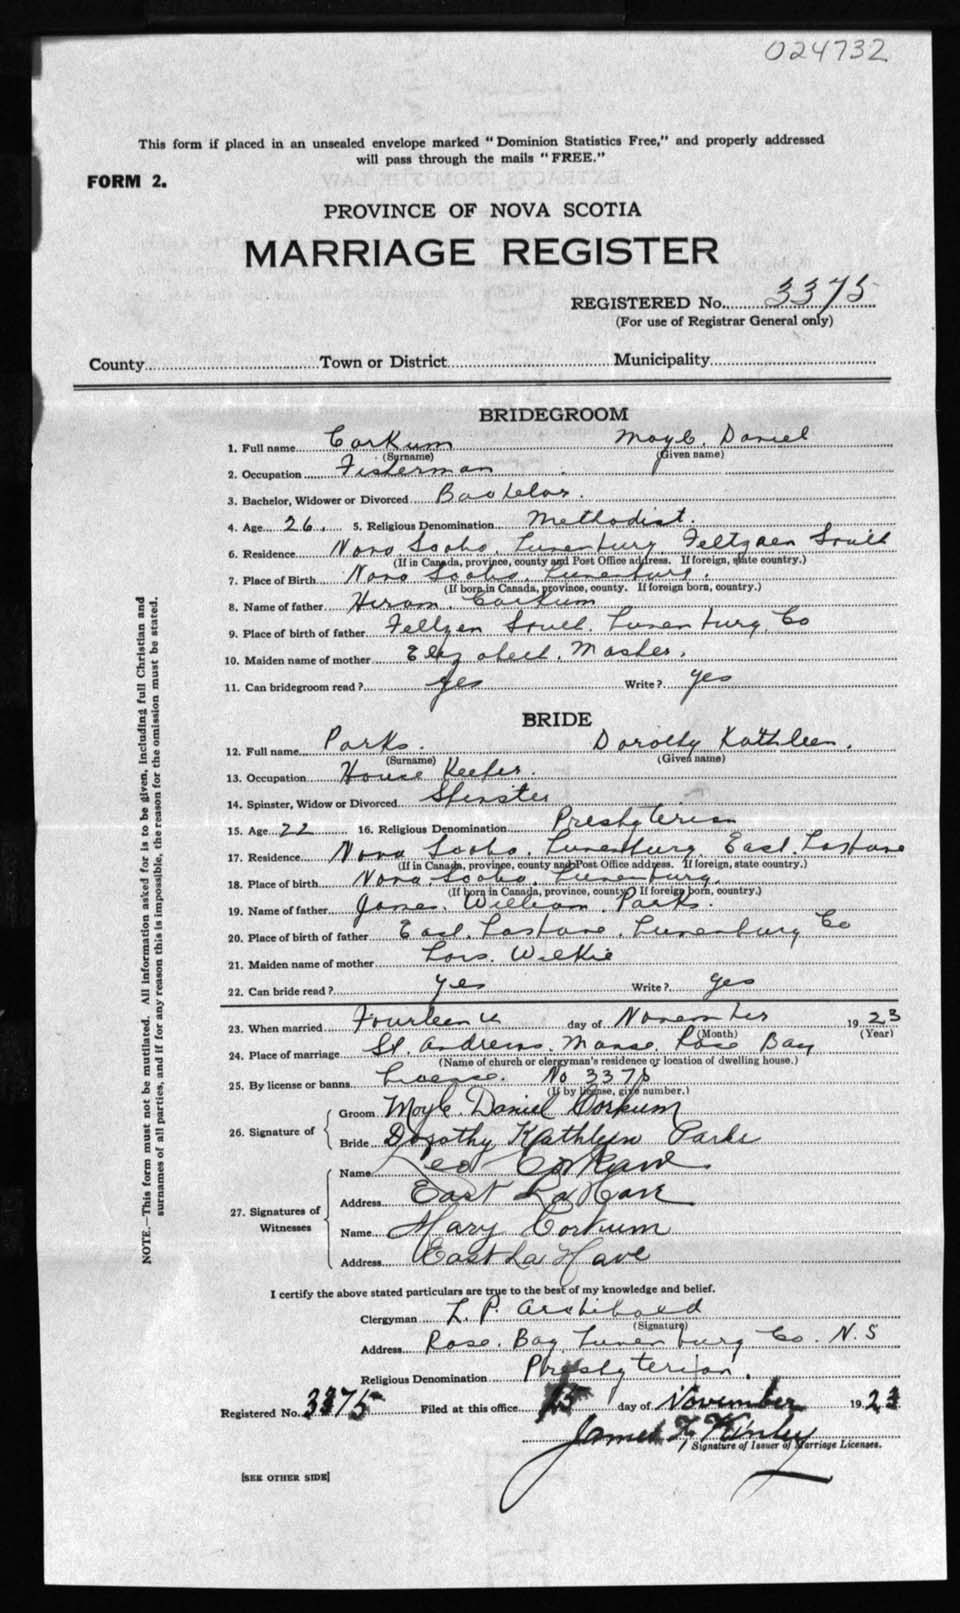 024732
This form if placed in an unsealed envelope marked "Dominion Statistics Free," and properly addressed
will pass through the mails "FREE."
FORM 2.
PROVINCE OF NOVA SCOTIA
MARRIAGE REGISTER
REGISTERED No. 3375
(For use of Registrar General only)
County Town or District Municipality
BRIDEGROOM
1. Full name Corkum Moyle Daniel
(Surname) (Given name)
2. Occupation Fisherman
3. Bachelor, Widower or Divorced Bachelor.
4. Age 26. 5. Religious Denomination Methodist.
6. Residence Nova Scotia, Lunenburg, Feltzen South
(If in Canada, province, county and Post Office address. If foreign, state country.)
7. Place of Birth Nova Scotia, Lunenburg.
(If born in Canada, province, county. If foreign born, country.)
8. Name of father Hiram. Corkum
9. Place of birth of father Feltzen South. Lunenburg. Co
10. Maiden name of mother Elizabeth. Mosher.
11. Can bridegroom read? yes Write? yes
BRIDE
12. Full name Parks. Dorothy Kathleen.
(Surname) (Given name)
13. Occupation House Keeper.
14. Spinster, Widow or Divorced Spinster
15. Age 22 16. Religious Denomination Presbyterian
17. Residence Nova Scotia. Lunenburg. East. LaHave
(If in Canada, province, county and Post Office address. If foreign, state country.)
18. Place of birth Nova Scotia, Lunenburg.
(If born in Canada, province, county? If foreign born, country.)
19. Name of father James. William. Parks.
20. Place of birth of father East. LaHave. Lunenburg Co
21. Maiden name of mother Lois. Wilkie
22. Can bride read? yes Write? yes
23. When married Fourteenth day of November 1923
(Month) (Year)
24. Place of marriage St. Andrews. Manse. Rose Bay
(Name of church or clergyman's residence or location of dwelling house.)
25. By license or banns License. No 3375
(If by license, give number.)
26. Signature of Groom Moyle. Daniel Corkum
Bride Dorothy Kathleen Parks
27. Signatures of Witnesses Name Leo Corkum
Address East LaHave
Name Mary Corkum
Address East La Have
I certify the above stated particulars are true to the best of my knowledge and belief.
Clergyman L. P. Archibald
(Signature)
Address Rose. Bay, Lunenburg Co. N.S
Religious Denomination Presbyterian.
Registered No. 3375 Filed at this office 15 day of November 1923
James F. Kinley
Signature of Issuer of Marriage Licenses.
[SEE OTHER SIDE]
NOTE.—This form must not be mutilated. All information asked for is to be given, including full Christian and
surnames of all parties, and if for any reason this is impossible, the reason for the omission must be stated.